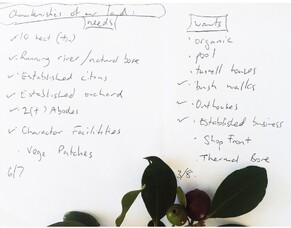 Characteristics of our land:
needs
✓ 10 hect (+/-)
✓ Running river/natural bore
✓ Established citrus
✓ Established orchard
✓ 2(+) Abodes
✓ Character Facilities
· Vege Patches
6/7
wants
· organic
· pool
· houses
✓ bush walks
✓ Outhouses
✓ Established business
· Shop Front
· Thermal Bore
3/8